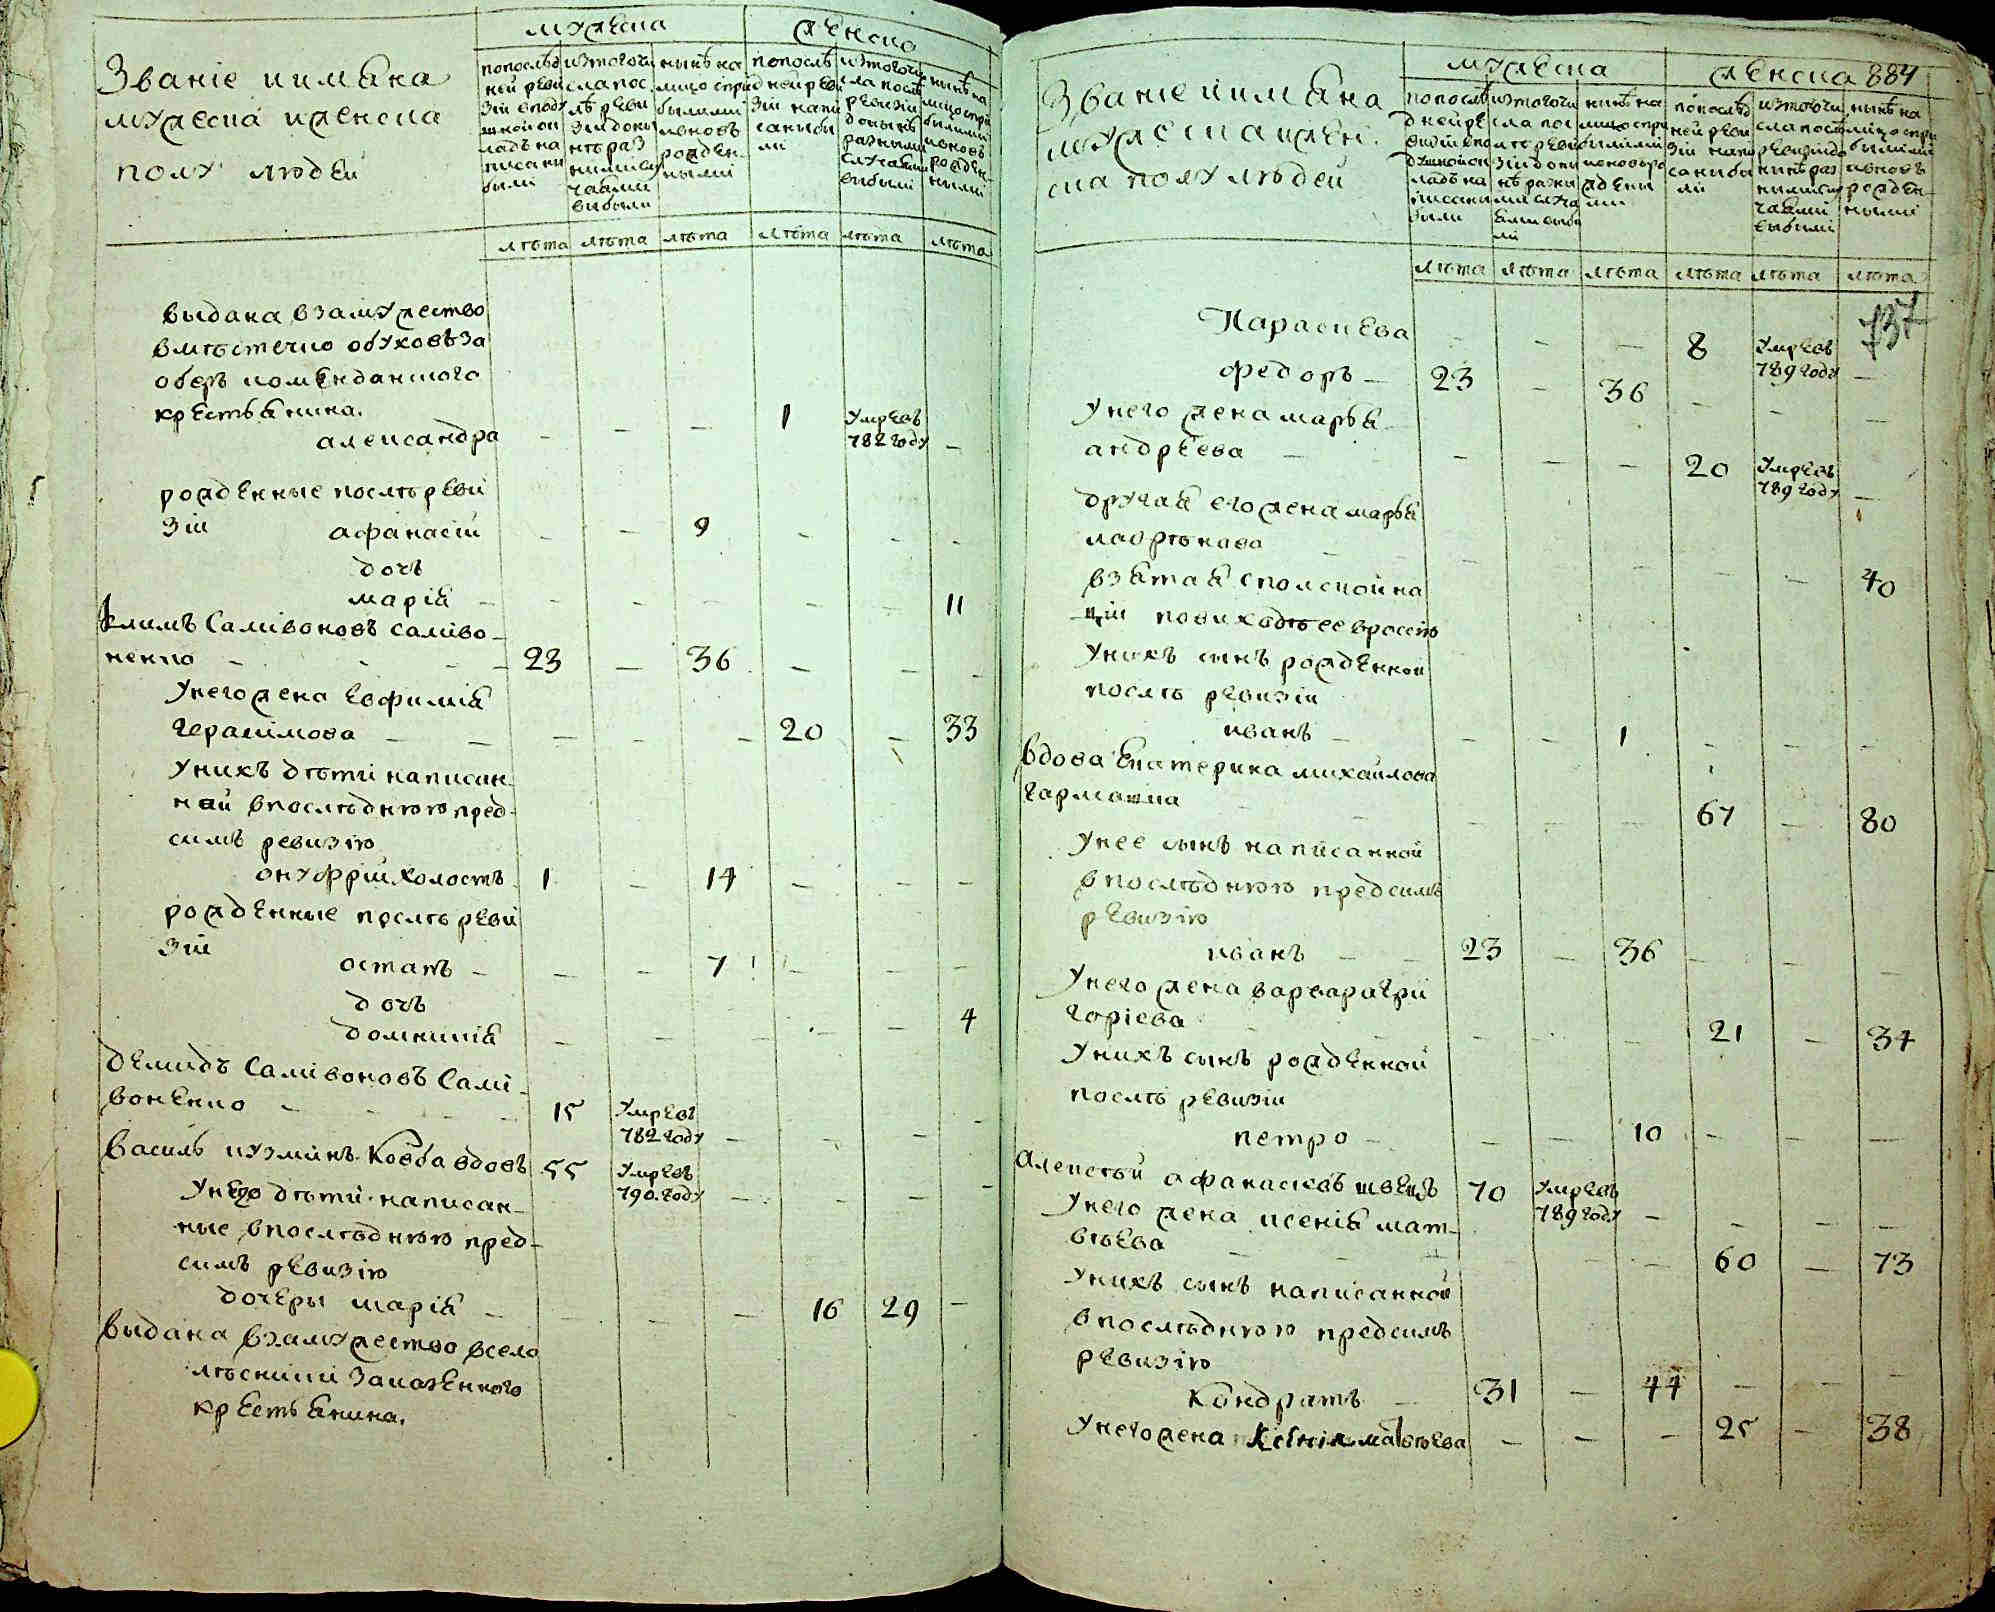 Званіе и имяна
мужеска и женска
полу людей
мужеска
женска
попослѣд
ней реви
зіи вподу
шной ок
ладъ на
писаны
были
изтого чи
сла пос
лѣ реви
зіи доны
нѣ раз
ными слу
чаями
выбыли
нынѣ на
лицо спри
былими
и вновь
рожден
ными
попослѣ
дней реви
зіи напи
саны бы
ли
изтого чи
сла послѣ
ревизіи
донынѣ
разными
случаями
выбыли
нынѣ на
лицо спри
былими
и вновь
рожден
ными
лѣта лѣта лѣта лѣта лѣта лѣта
выдана взамужество
вмѣстечко обуховъ за
оберъ коменданского
крестьянина.
александра — — — 1 умре въ 782 году —
рожденные послѣ реви
зіи афанасій — — 9 — — —
дочь
марія — — — — — 11
Климъ Самвоновъ самво
ненко — 23 — 36 — — —
у него жена евфимія
герасимова — — — — 20 — 33
у нихъ дѣти написан
ной впослѣднюю пред
симъ ревизію
онуфрій холостъ 1 — 14 — — —
рожденные послѣ реви
зіи
остапъ — — — 7 — — —
дочь
домникія — — — — — 4
демидъ Самвоновъ Самі
воненко — 15 умре въ 782 году — — — —
василь кузминъ Ковба вдовъ 55 умре въ 790 году — — — —
у него дѣти написан
ные впослѣднюю пред
симъ ревизію
дочеры марія — — — — 16 29 —
выдана взамужество всело
лѣсники заказенного
крестьянина.
Званіе и имяна
мужеска и жен
ска полу людей
мужеска
женска 884
попослѣ
дней ре
визіи впо
душной ок
ладъ на
писаны
были
изтого чи
сла пос
лѣ реви
зіи доны
нѣ разны
ми случа
ями выбы
ли
нынѣ на
лицо спри
былими
и вновь ро
ждены
ми
попослѣд
ней реви
зіи напи
саны бы
ли
изтого чи
сла послѣ
ревизіи до
нынѣ раз
ными слу
чаями
выбыли
нынѣ на
лицо спри
былими
и вновь
рожден
ными
лѣта лѣта лѣта лѣта лѣта лѣта
737
Параскева — — — 8 умре въ 789 году —
федоръ — 23 — 36 — — —
у него жена марья
андреева — — — — 20 умре въ 789 году —
другая его жена марья
лаврѣнова — — — — — 40
взятая сполской на
ціи повиходѣ ее вроссію
у нихъ сынъ рожденной
послѣ ревизіи
иванъ — — — 1 — — —
вдова Екатерина михайлова
гармашка — — — 67 — 80
у нее сынъ написанной
впослѣднюю предсимъ
ревизію
иванъ — — 23 — 36 — — —
у него жена варвара гри
горіева — — — 21 — 34
у нихъ сынъ рожденной
послѣ ревизіи
петро — — — 10 — — —
Алексѣй афанасіевъ швецъ 70 умре въ 789 году — — — —
у него жена ксенія мат
вѣева — — — 60 — 73
у нихъ сынъ написанной
впослѣднюю предсимъ
ревизію
Кондратъ — 31 — 44 — — —
у него жена Ксенія матвѣева — — — 25 — 38